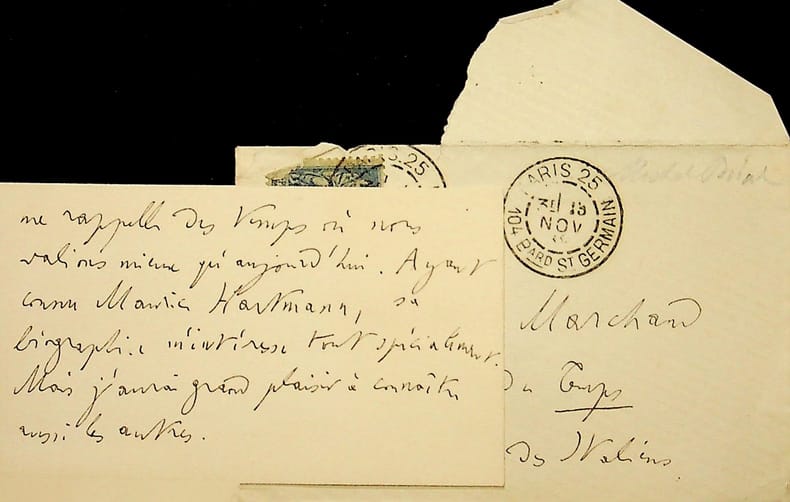 me rappelle des temps où nous
valions mieux qu'aujourd'hui. Ayant
connu Maurice Hartmann, sa
biographie m'intéresse tout spécialement.
Mais j'aurai grand plaisir à connaître
aussi les autres.
PARIS 25
PARIS 25
13
NOV
104 BARD ST GERMAIN
Marchand
du Temps
des Italiens